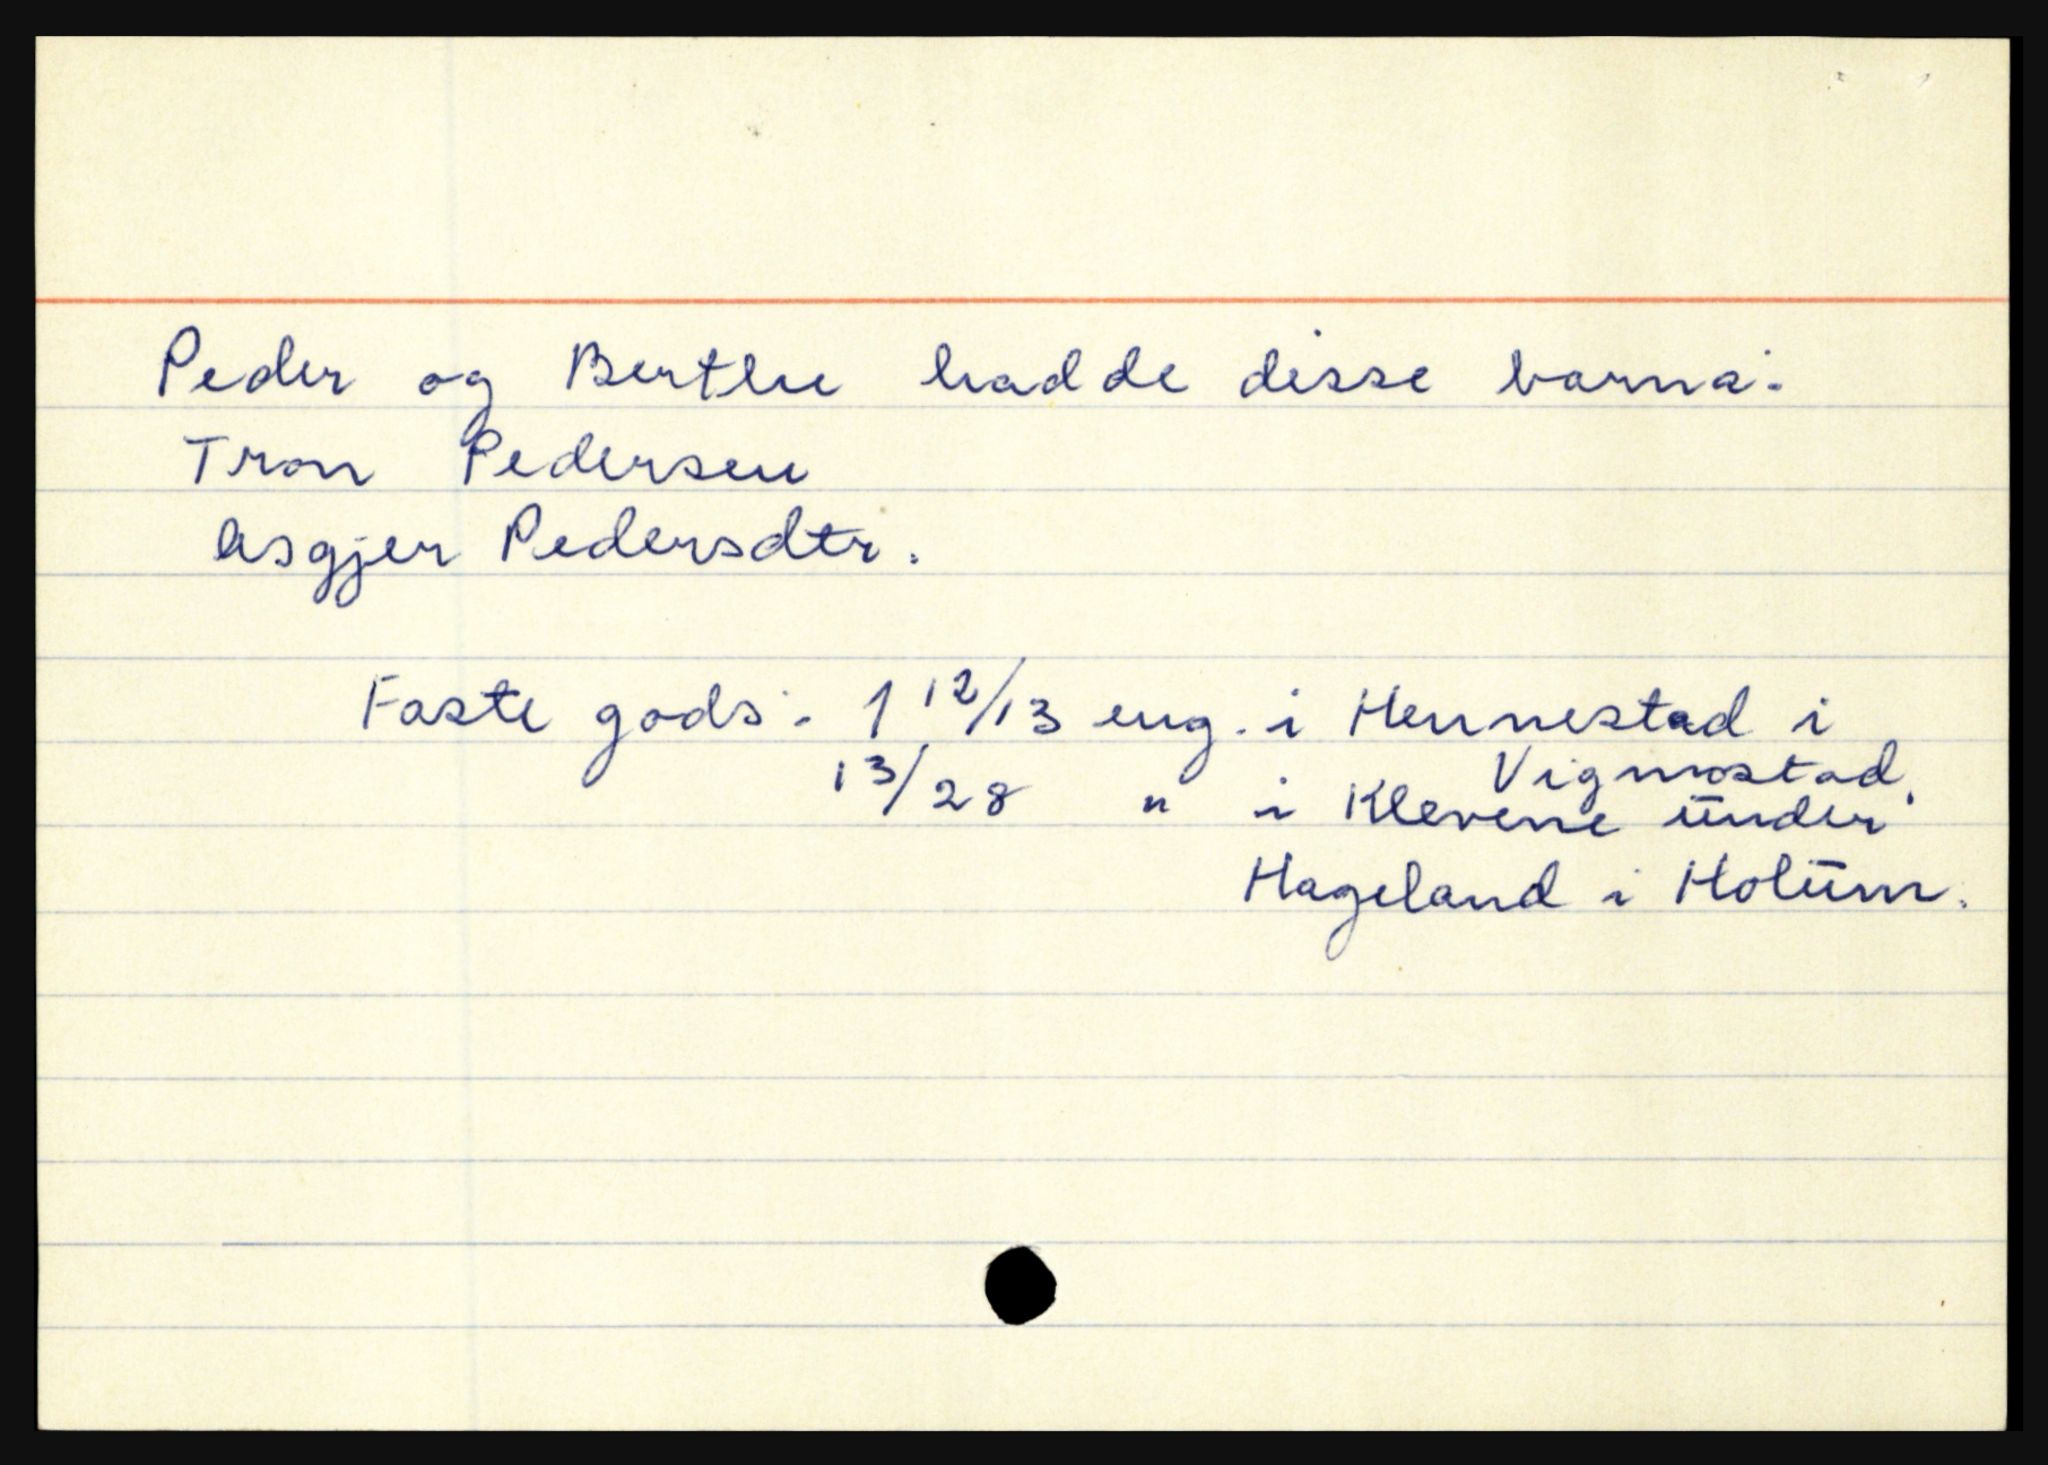 Peder og Berthe hadde disse barna:
Tron Pedersen
Asgjer Pedersdtr.
Faste gods: 1 12/13 eng. i Hennestad i
Vigmostad.
13/28 " i Klevene under
Hageland i Holum.